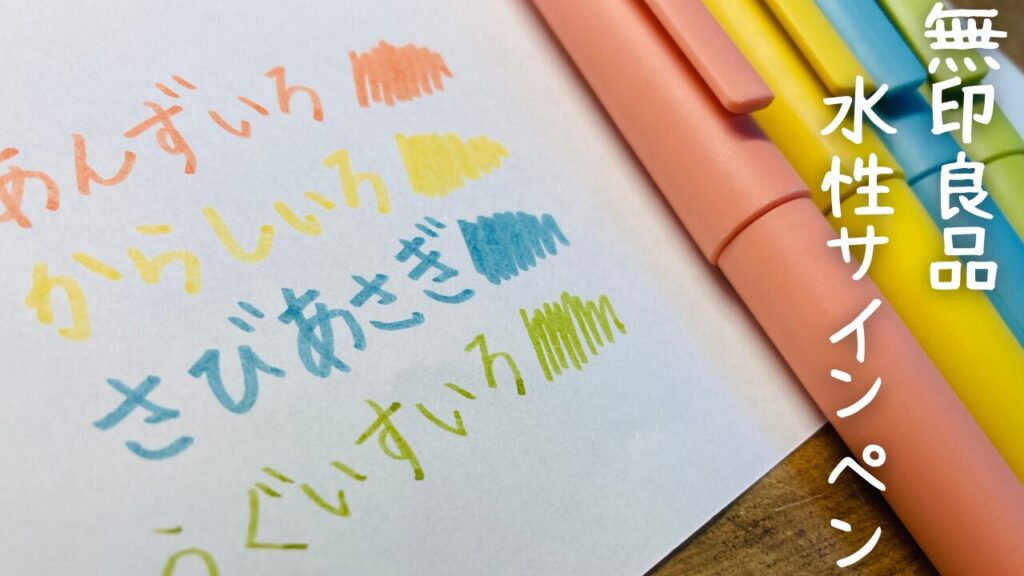 無印良品
水性サインペン
あんずいろ
からしいろ
さびあさぎ
うぐいすいろ